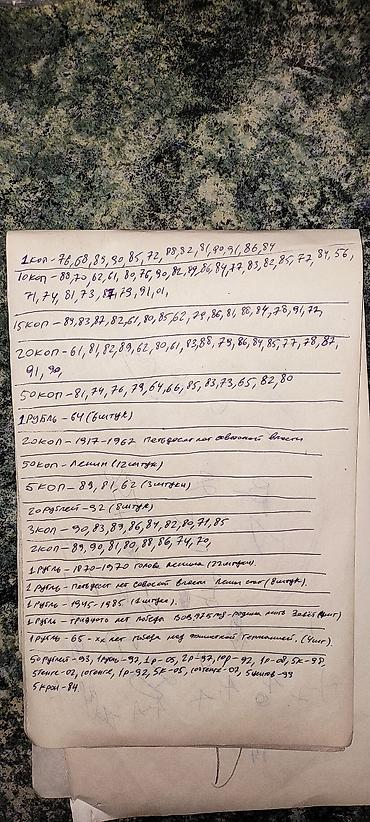 1 коп - 76,68,89,90,85,72,88,82,81,90,91,86,84
10коп - 88,70,62,61,80,76,90,82,89,86,84,77,83,82,85,72,84,56,
71,74,81,73,87,79,91,01,
15 коп - 89,83,87,82,61,80,85,62,79,86,81,88,84,78,91,77,
20коп - 61,81,82,89,62,80,61,83,88,79,86,84,85,77,78,87,
91,90,
50коп - 81,74,76,79,64,66,85,83,73,65,82,80
1 рубль - 64 (6штук)
20коп - 1917-1967 Пятьдесят лет советской власти
50коп - Ленин (12штук)
5 коп - 89,81,62 (3штуки)
20рублей - 92 (8штук)
3коп - 90,83,89,86,84,82,80,71,85
2коп - 89,90,81,80,88,86,74,70,
1 рубль - 1870-1970 голова ленина (22штуки).
1 рубль - Пятьдесят лет Советской власти Ленин стоит (8штук).
1 рубль - 1945-1985
1 рубль - тридцать лет победы родина мать
1 рубль - 65 - хх лет победы над фашистской Германией. (4шт).
50рублей - 93, 92, 1р-05, 2р-97, 10р-92, 1р-08, 5к-98
5тенге-02, 1р-92, 5к-05, 10тенге-02, 93
5крон-84